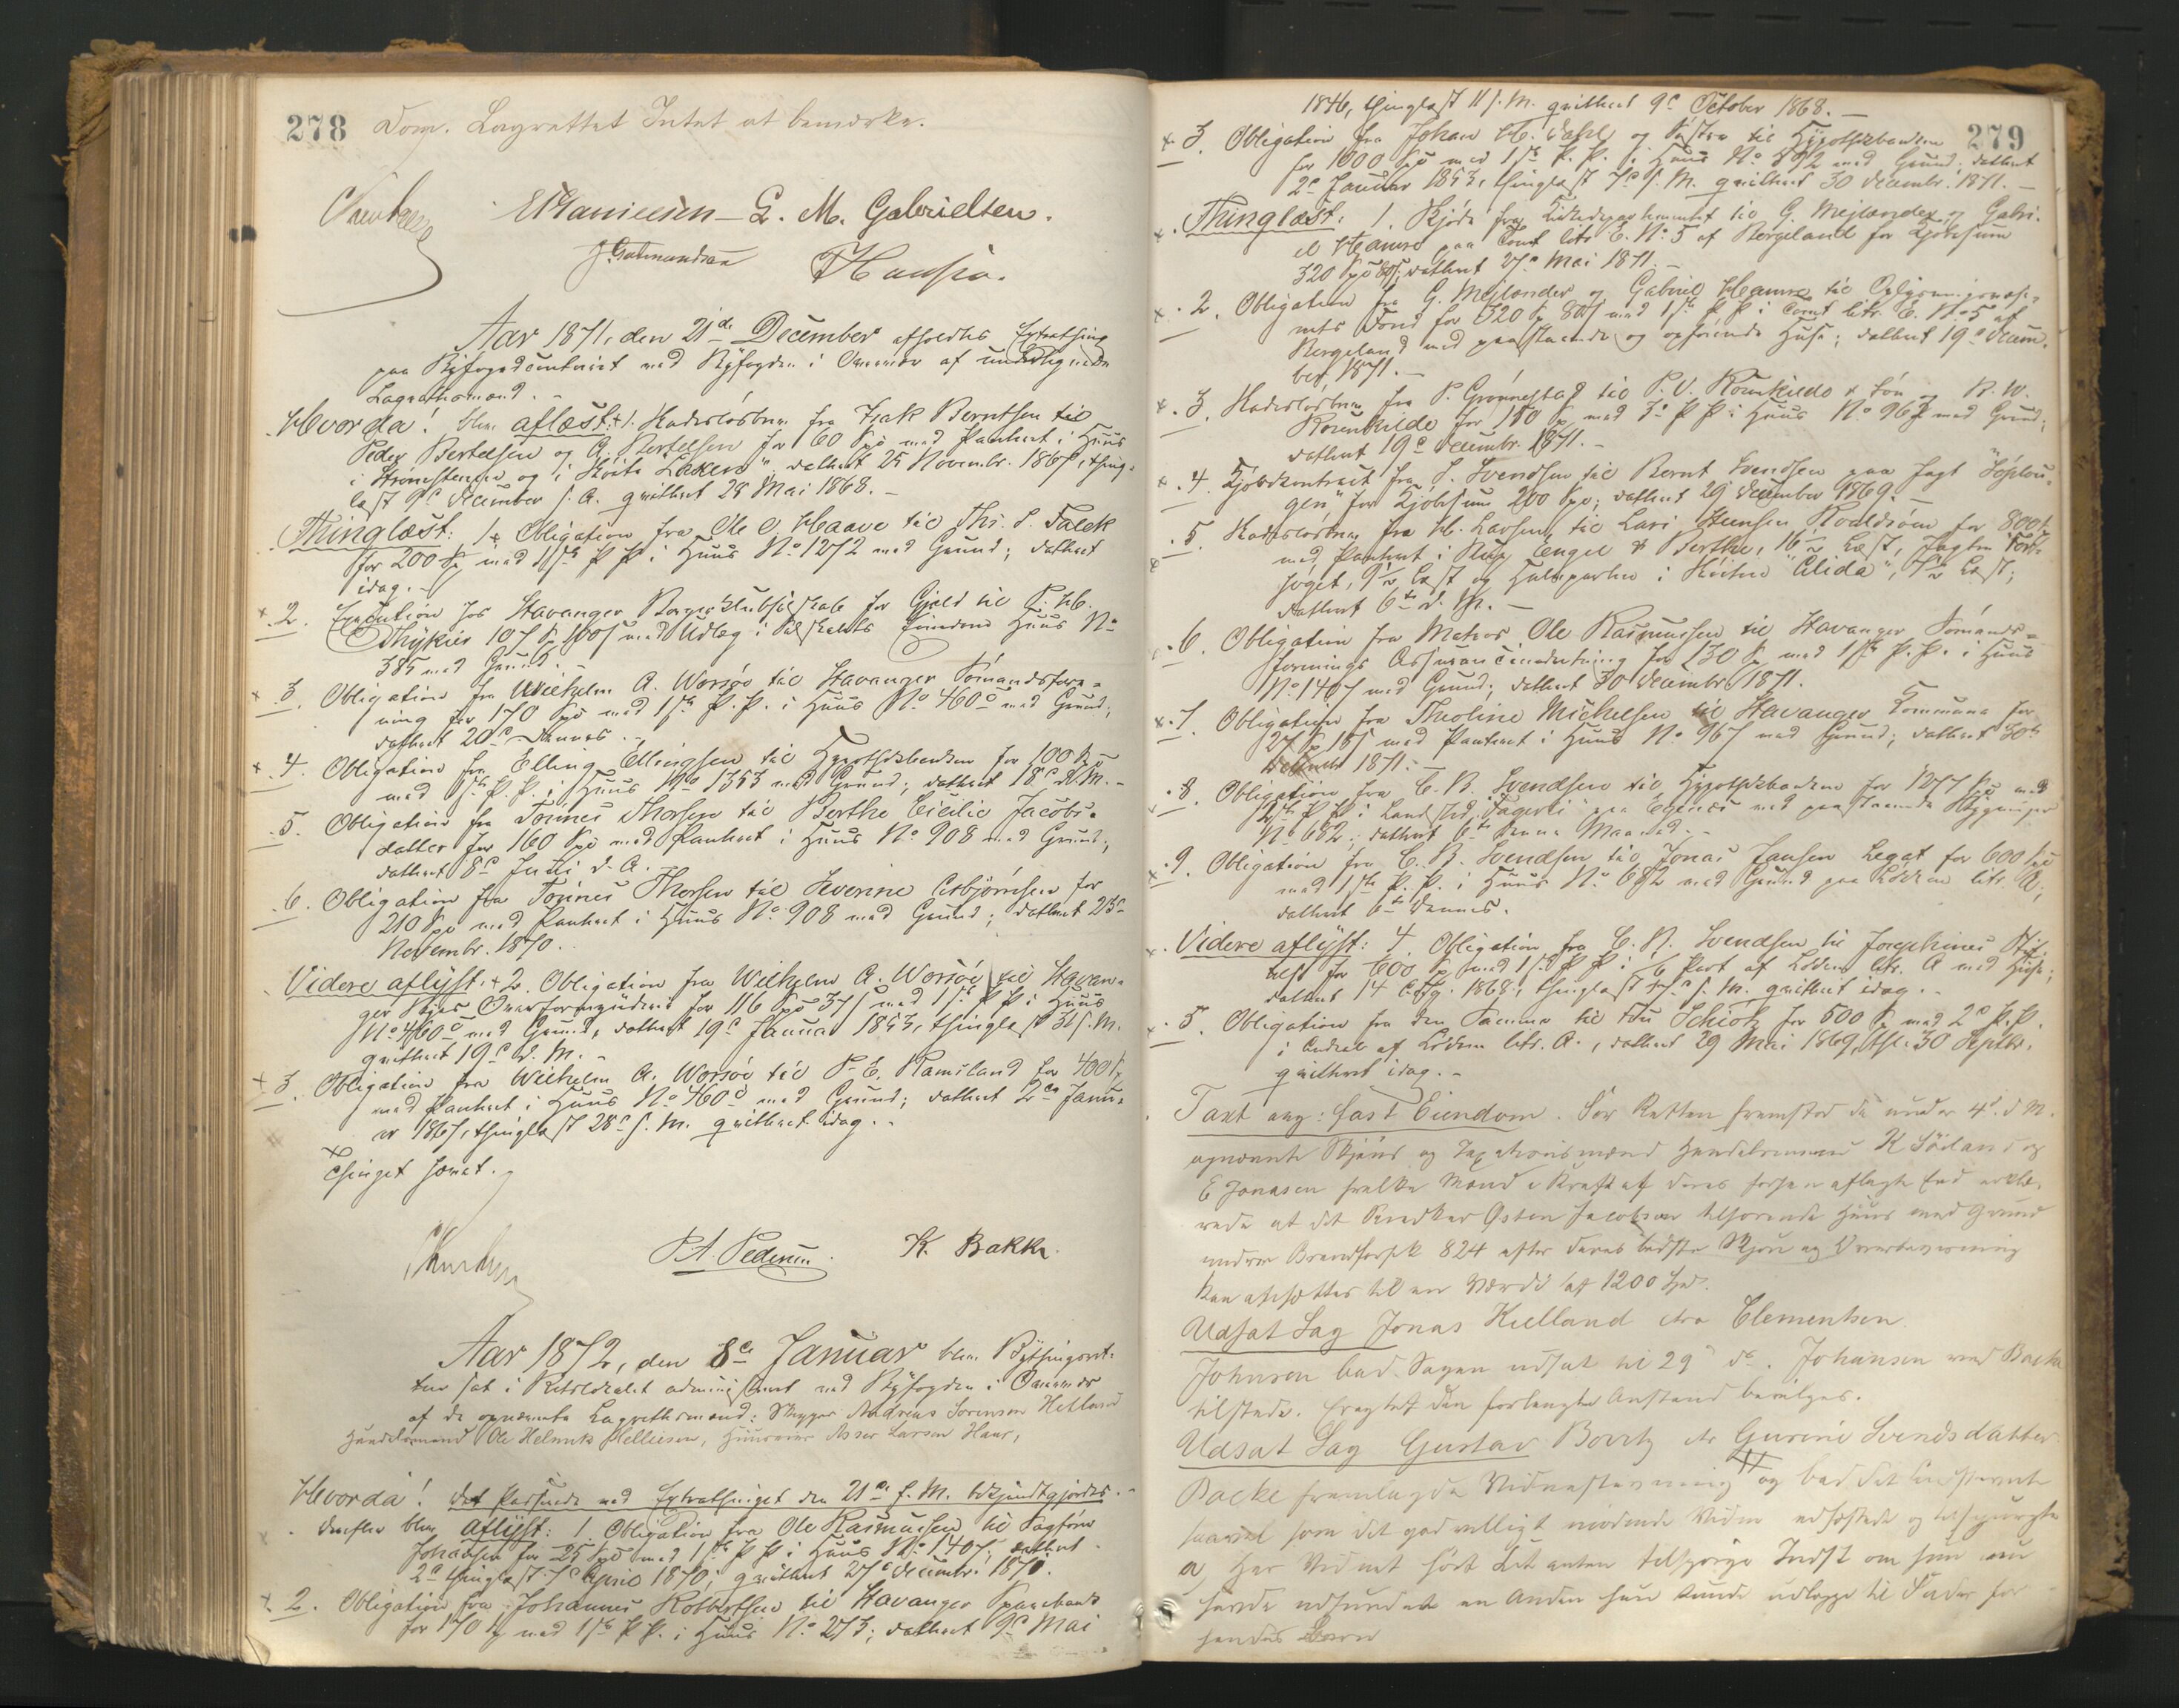 278 Dom. Lagrettet Intet at bemærke.
E Danielsen - G. M. Gabrielsen.
Hansen.
Aar 1871, den 21de December afholdtes Extrathing
paa Byfogedcontoiret ved Byfogden i Overvær af undertegnede
Lagrettesmænd. -
Hvorda! blev aflæst: 1. Skadesløsbrev fra Isak Berntsen til
Peder Bertelsen og A. Bertelsen for 60 Spd med Panteret i Huus
i Strømstenen og i Skøite "Laxen" dateret 25 Novembr. 1867, thing-
læst 9e December s. A. qvitteret 28 Mai 1868. -
Thinglæst: 1. Obligation fra Ole O. Haave til Ths. S. Falck
for 200 Sp med 1ste P. Pt. i Huus No 1272 med Grund; dateret
idag. -
2. Execution hos Stavanger Borgerklubselskab for Gjeld til P. H.
107 Sp 100 s med Udlæg i Selskabets Eiendom Huus No
385 med Grund. -
3. Obligation fra Wilhelm A. Worsøe til Stavanger Sømandsfore-
ning for 170 Spd med 1ste P. Pt. i Huus No 460c med Grund;
dateret 20e Dennes. -
4. Obligation fra Elling Ellingsen til Hypothekbanken for 100 Spd
med 1ste P. Pt. i Huus No 1353 med Grund; dateret 18e d. M. -
5. Obligation fra Tønnes Thorsen til Berthe Cicilie Jacobs-
datter for 160 Spd med Panteret i Huus No 908 med Grund;
dateret 8e Juli d. A.
6. Obligation fra Tønnes Thorsen til Severine Asbjørnsen for
210 Spd med Panteret i Huus No 908 med Grund; dateret 23e
Novembr. 1870.
Videre aflyst: 2. Obligation fra Wilhelm A. Worsøe til Stavan-
ger Byes Overformynderi for 116 Spd 37 s med 1ste P. Pt. i Huus
No 460c med Grund, dateret 19e Januar 1853, thinglæst 31 s. M.
qvitteret 19e d. M. -
3. Obligation fra Wilhelm A. Worsøe til P. E. Ramsland for 400 Sp
med Panteret i Huus No 460c med Grund; dateret 2en Janu-
ar 1867, thinglæst 28e s. M. qvitteret idag. -
Thinget hævet.
P. A. Pedersen. K. Bakke.
Aar 1872, den 8e Januar blev Bythingsret-
ten sat i Retslokalet administreret ved Byfogden i Overvær
af de opnævnte Lagrettesmænd: Skipper Andreas Sørensen Hetland
Handelsmand Ole Helmik Helliesen, Huuseier Asser Larsen Haar,
Hvorda! det Passerede ved Extrathinget den 21de f. M. bekjendtgjordes. -
derefter blev aflyst: 1. Obligation fra Ole Rasmussen til Sagfører
Johnsen for 25 Spd med 1ste P. Pt. i Huus No 1407; dateret
2e thinglæst 7e April 1870; qvitteret 27e Decembr. 1870.
2. Obligation fra Johannes Robbertsen til Stavanger Sparebank
for 170 Sp med 1ste P. Pt. i Huus No 273; dateret 9e Mai
279
1846, thinglæst 11 s. M. qvitteret 9e October 1868. -
3. Obligation fra Johan H. Dahl og Søstre til Hypothekbanken
for 1000 Spd med 1ste P. Pt. i Huus No 592 med Grund; dateret
2e Januar 1853, thinglæst 7e s. M. qvitteret 30 Decembr. 1871. -
Thinglæst: 1. Skjøde fra Kirkedepartementet til G. Mejlænder og Gabri-
el Hamre paa Tomt litr. E. No 5 af Bergeland for Kjøbesum
320 Spd 80 s; dateret 27e Mai 1871. -
2. Obligation fra G. Mejlænder og Gabriel Hamre til Oplysningsvæse-
nets Fond for 320 Sp 80 s med 1ste P. Pt. i Tomt litr. E. No 5 af
Bergeland med paastaaende og opførende Huse; dateret 19e Decem-
ber 1871. -
3. Skadesløsbrev fra P. Grønnestad til P. V. Rosenkilde & Søn og B. W.
Rosenkilde for 150 Sp med 3e P. Pt. i Huus No 962 med Grund;
dateret 19e Decembr. 1871. -
4. Kjøbekontract fra S. Svendsen til Bernt Svendsen paa Jagt "Søplou-
gen" for Kjøbesum 200 Spd; dateret 29 December 1869. -
5. Skadesløsbrev fra H. Larsen til Lars Hansen Roaldsøen for 800 Sp
med Panteret i Slup "Engel & Berthe", 16 Læst, Jagten "For-
søget", 9 Læst og Halvparten i Skøiten "Elida", 7 Læst;
dateret 6te d. M. -
6. Obligation fra Matros Ole Rasmussen til Stavanger Sømands-
forenings Assuranceindretning for 130 Sp med 1ste P. Pt. i Huus
No 1407 med Grund; dateret 30 Decembr. 1871.
7. Obligation fra Theoline Michelsen til Stavanger Kommune for
27 Sp 16 s med Panteret i Huus No 967 med Grund; dateret 30te
Decembr 1871. -
8. Obligation fra C. B. Svendsen til Hypothekbanken for 1277 Spd med
2den P. Pt. i Landsted "Fagerli" paa Egenes med paastaaende Bygninger
No 682; dateret 6te denne Maaned. -
9. Obligation fra C. B. Svendsen til Jonas Jansen Legat for 600 Spd
med 1ste P. Pt. i Huus No 682 med Grund paa Løkken litr. A;
dateret 6te Dennes.
Videre aflyst: 4. Obligation fra C. B. Svendsen til Josephines Stif-
telse for 600 Sp med 1ste P. Pt. i Part af Løkken litr. A med Huse;
dateret 14 Aug. 1868, thinglæst s. M. qvitteret idag. -
5. Obligation fra den Samme til Schiøtz for 500 Sp med 2e P. Pt.
i Andeel af Løkken litr. A., dateret 29 Mai 1869, thl. 30 Septbr.
qvitteret idag. -
Taxt ang: fast Eiendom. For Retten fremstod de under 4de d M.
opnævnte Skjøns og Taxationsmænd Handelsmænd K Søiland og
E Jonasen hvilke Mænd i Kraft af deres forhen aflagte Eed erklæ-
rede at det Snedker Østen Jacobsen tilhørende Huus med Grund
under Brandforsk 824 efter deres bedste Skjøn og Overbeviisning
kan ansættes til en Værdi af 1200 Spd.
Udsat Sag Jonas Kielland ctra Clementsen.
Johnsen bad Sagen udsat til 29de ds. Johansen ved Backe
tilstede. Eragtet den forlangte Anstand bevilges.
Udsat Sag Gustav Bovitz ctr Gurine Svendsdatter
Backe fremlagde Vidnestevning og bad det indstevnte
saavel som det godvilligt mødende Vidne edfæstede og tilspurgte
a, Har Vidnet hørt Citanten tilspørge Indst om hun nu
havde udfundet en Anden hun kunde udlægge til Fader for
hendes Barn